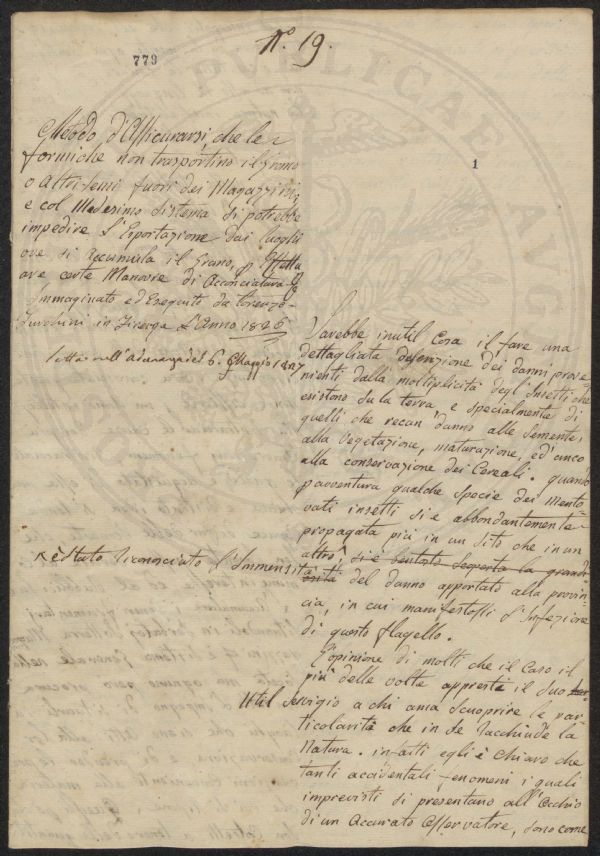 N.° 19.
779
1
Metodo d'Assicurarsi, che le
formiche non trasportino il Grano
o Altri semi fuori dei Magazzini,
e col Medesimo sistema si potrebbe
impedire l'Esportazione dai luoghi
ove si Accumula il Grano, p Effettu
are certe Manovre di Acconciatura
Immaginato ed Eseguito da Lorenzo
in Firenze l'Anno 1826
Letta nell'Adunanza del 6. Maggio 1827
Sarebbe inutil Cosa il fare una
dettagliata descrizione dei danni prove
nienti dalla moltiplicità degl'Insetti che
esistono su la terra, e specialmente di
quelli che recan danno alle Semente,
alla Vegetazione, maturazione, ed anco
alla conservazione dei Cereali. quando
p avventura qualche specie dei mento
vati insetti si è abbondantemente
propagata più in un sito che in un
altro, si è bentosto scoperta la grandi
x è stato riconosciuto l'Immensità
osità del danno apportato alla provin
cia, in cui manifestossi l'Infezione
di questo flagello.
L'opinione di molti che il Caso il
più delle volte appresti il suo
Util servigio a chi ama scuoprire le par
ticolarità che in se racchiude la
Natura. infatti egli è Chiaro che
tanti accidentali fenomeni i quali
imprevisti si presentano all'Occhio
di un Accurato Osservatore, sono come